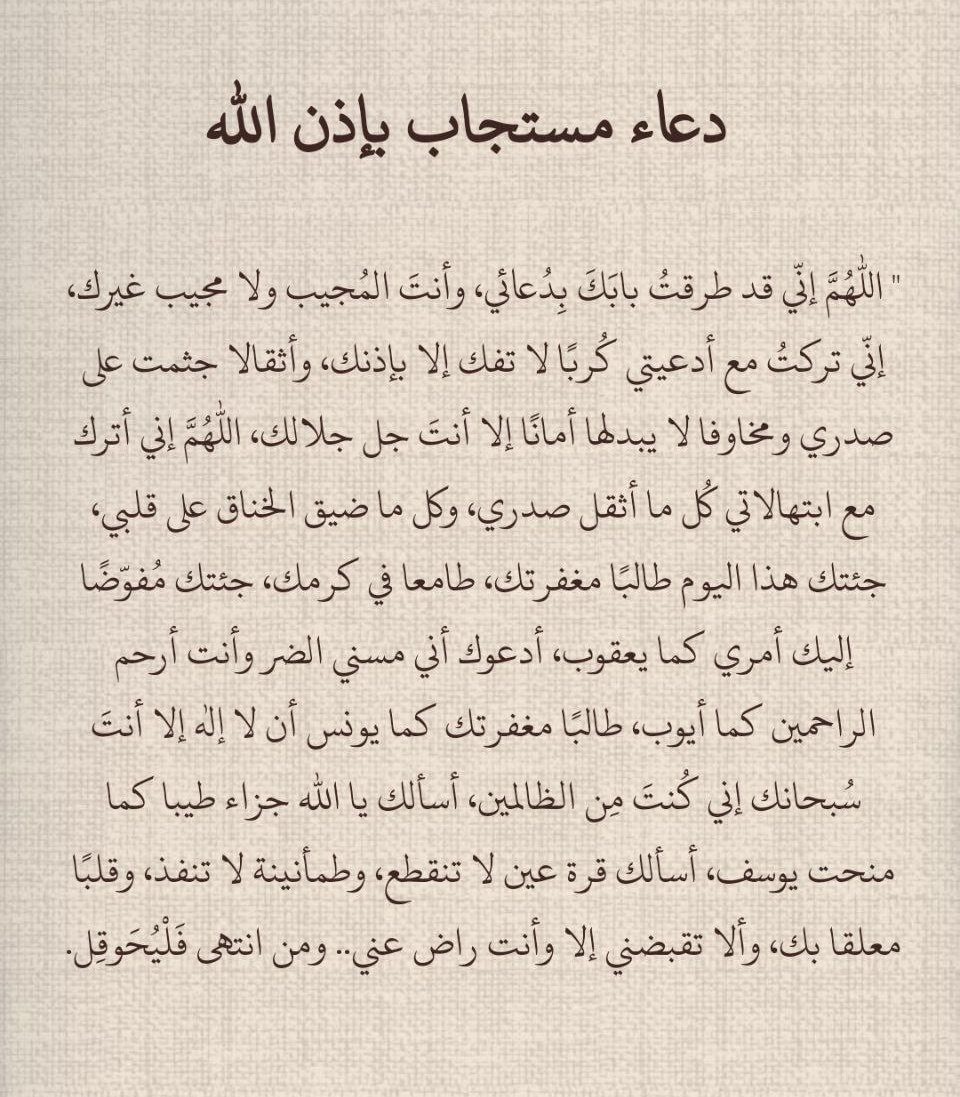 دعاء مستجاب بإذن الله
" اللّٰهُمَّ إنّي قد طرقتُ بابَكَ بِدُعائي، وأنتَ المُجيب ولا مجيب غيرك،
إنّي تركتُ مع أدعيتي كُربًا لا تفك إلا بإذنك، وأثقالا جثمت على
صدري ومخاوفا لا يبدلها أمانًا إلا أنتَ جل جلالك، اللّٰهُمَّ إني أترك
مع ابتهالاتي كُل ما أثقل صدري، وكل ما ضيق الخناق على قلبي،
جئتك هذا اليوم طالبًا مغفرتك، طامعا في كرمك، جئتك مُفوّضًا
إليك أمري كما يعقوب، أدعوك أني مسني الضر وأنت أرحم
الراحمين كما أيوب، طالبًا مغفرتك كما يونس أن لا إلٰه إلا أنتَ
سُبحانك إني كُنتَ مِن الظالمين، أسألك يا الله جزاء طيبا كما
منحت يوسف، أسألك قرة عين لا تنقطع، وطمأنينة لا تنفذ، وقلبًا
معلقا بك، وألا تقبضني إلا وأنت راض عني.. ومن انتهى فَلْيُحَوقِل.